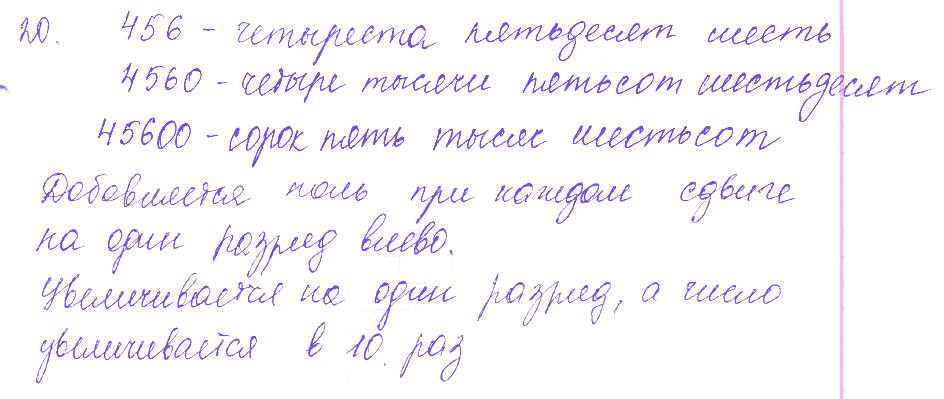 20. 456 - четыреста пятьдесят шесть
4560 - четыре тысячи пятьсот шестьдесят
45600 - сорок пять тысяч шестьсот
Добавляется ноль при каждом сдвиге
на один разряд влево.
Увеличивается на один разряд, а число
увеличивается в 10 раз